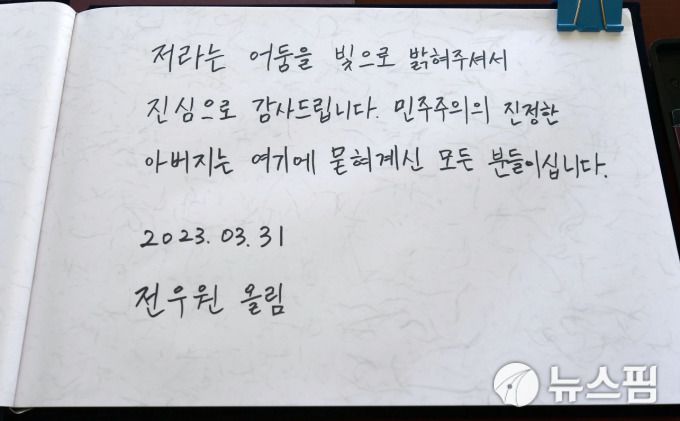 저라는 어둠을 빛으로 밝혀주셔서
진심으로 감사드립니다. 민주주의의 진정한
아버지는 여기에 묻혀계신 모든 분들이십니다.
2023.03.31
전우원 올림
뉴스핌